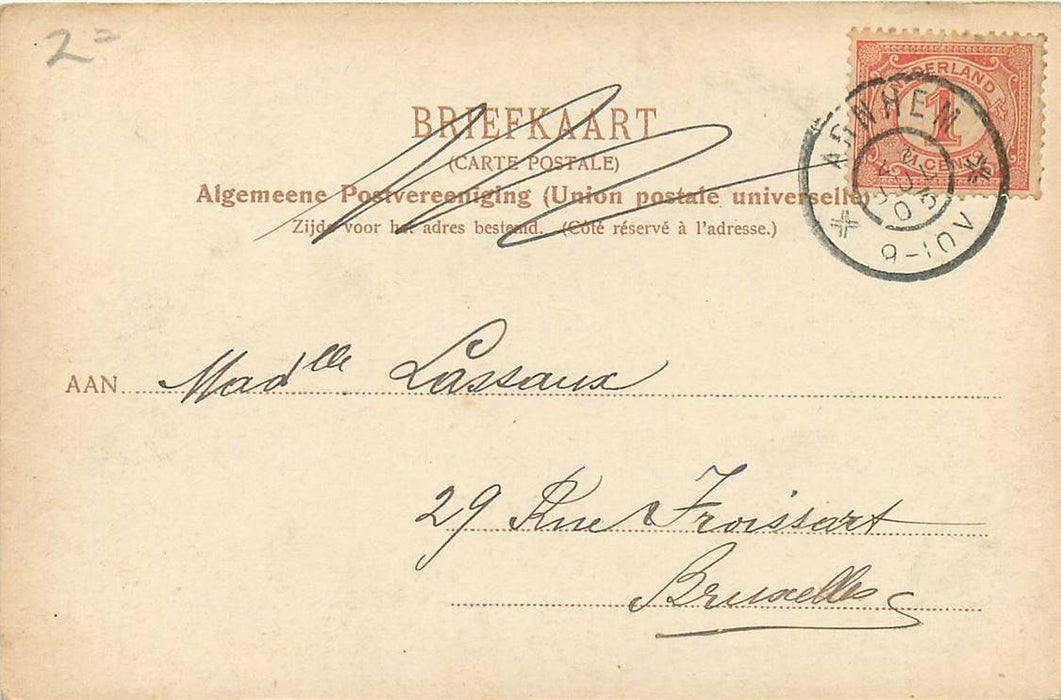 2=
NEDERLAND
1
CENT
ARNHEM
9-10V
BRIEFKAART
(CARTE POSTALE)
Algemeene Postvereeniging (Union postale universelle)
Zijde voor het adres bestemd. (Côté réservé à l'adresse.)
AAN Madlle Lassaux
29 Rue Froissart
Bruxelles